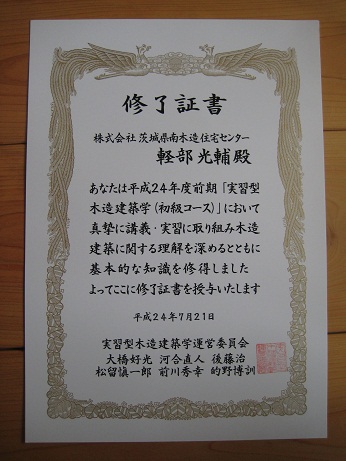 修了証書
株式会社 茨城県南木造住宅センター
軽部光輔殿
あなたは平成24年度前期「実習型
木造建築学(初級コース)」において
真摯に講義・実習に取り組み木造
建築に関する理解を深めるとともに
基本的な知識を修得しました
よってここに修了証書を授与いたします
平成24年7月21日
実習型木造建築学運営委員会
大橋好光 河合直人 後藤治
松留愼一郎 前川秀幸 的野博訓